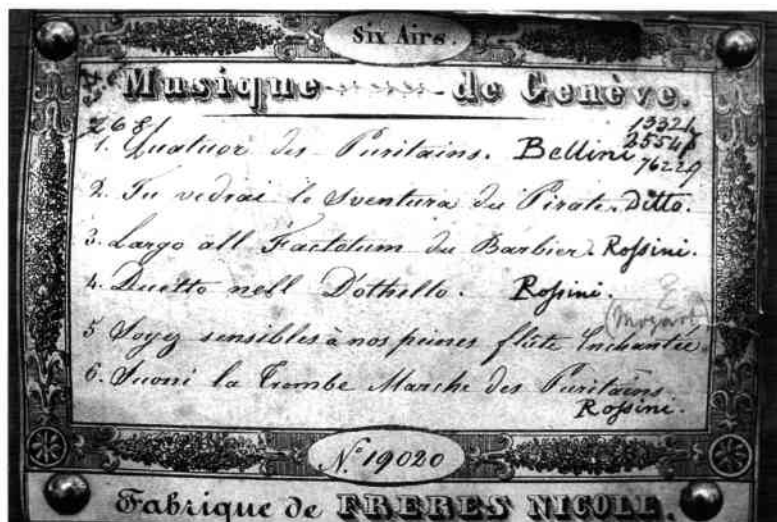 Six Airs.
Musique de Genève.
2681
13321
25548
76229
1. Quatuor des Puritains. Bellini
2. Tu vedrai le Sventura du Pirate. Ditto.
3. Largo all Factotum du Barbier. Rossini.
4. Duetto nell D'othello. Rossini.
(Mozart)
5 Soyez sensibles à nos peines flûte Enchantée.
6. Suoni la Trombe Marche des Puritains
Rossini.
N.º 19020
Fabrique de FRERES NICOLE.